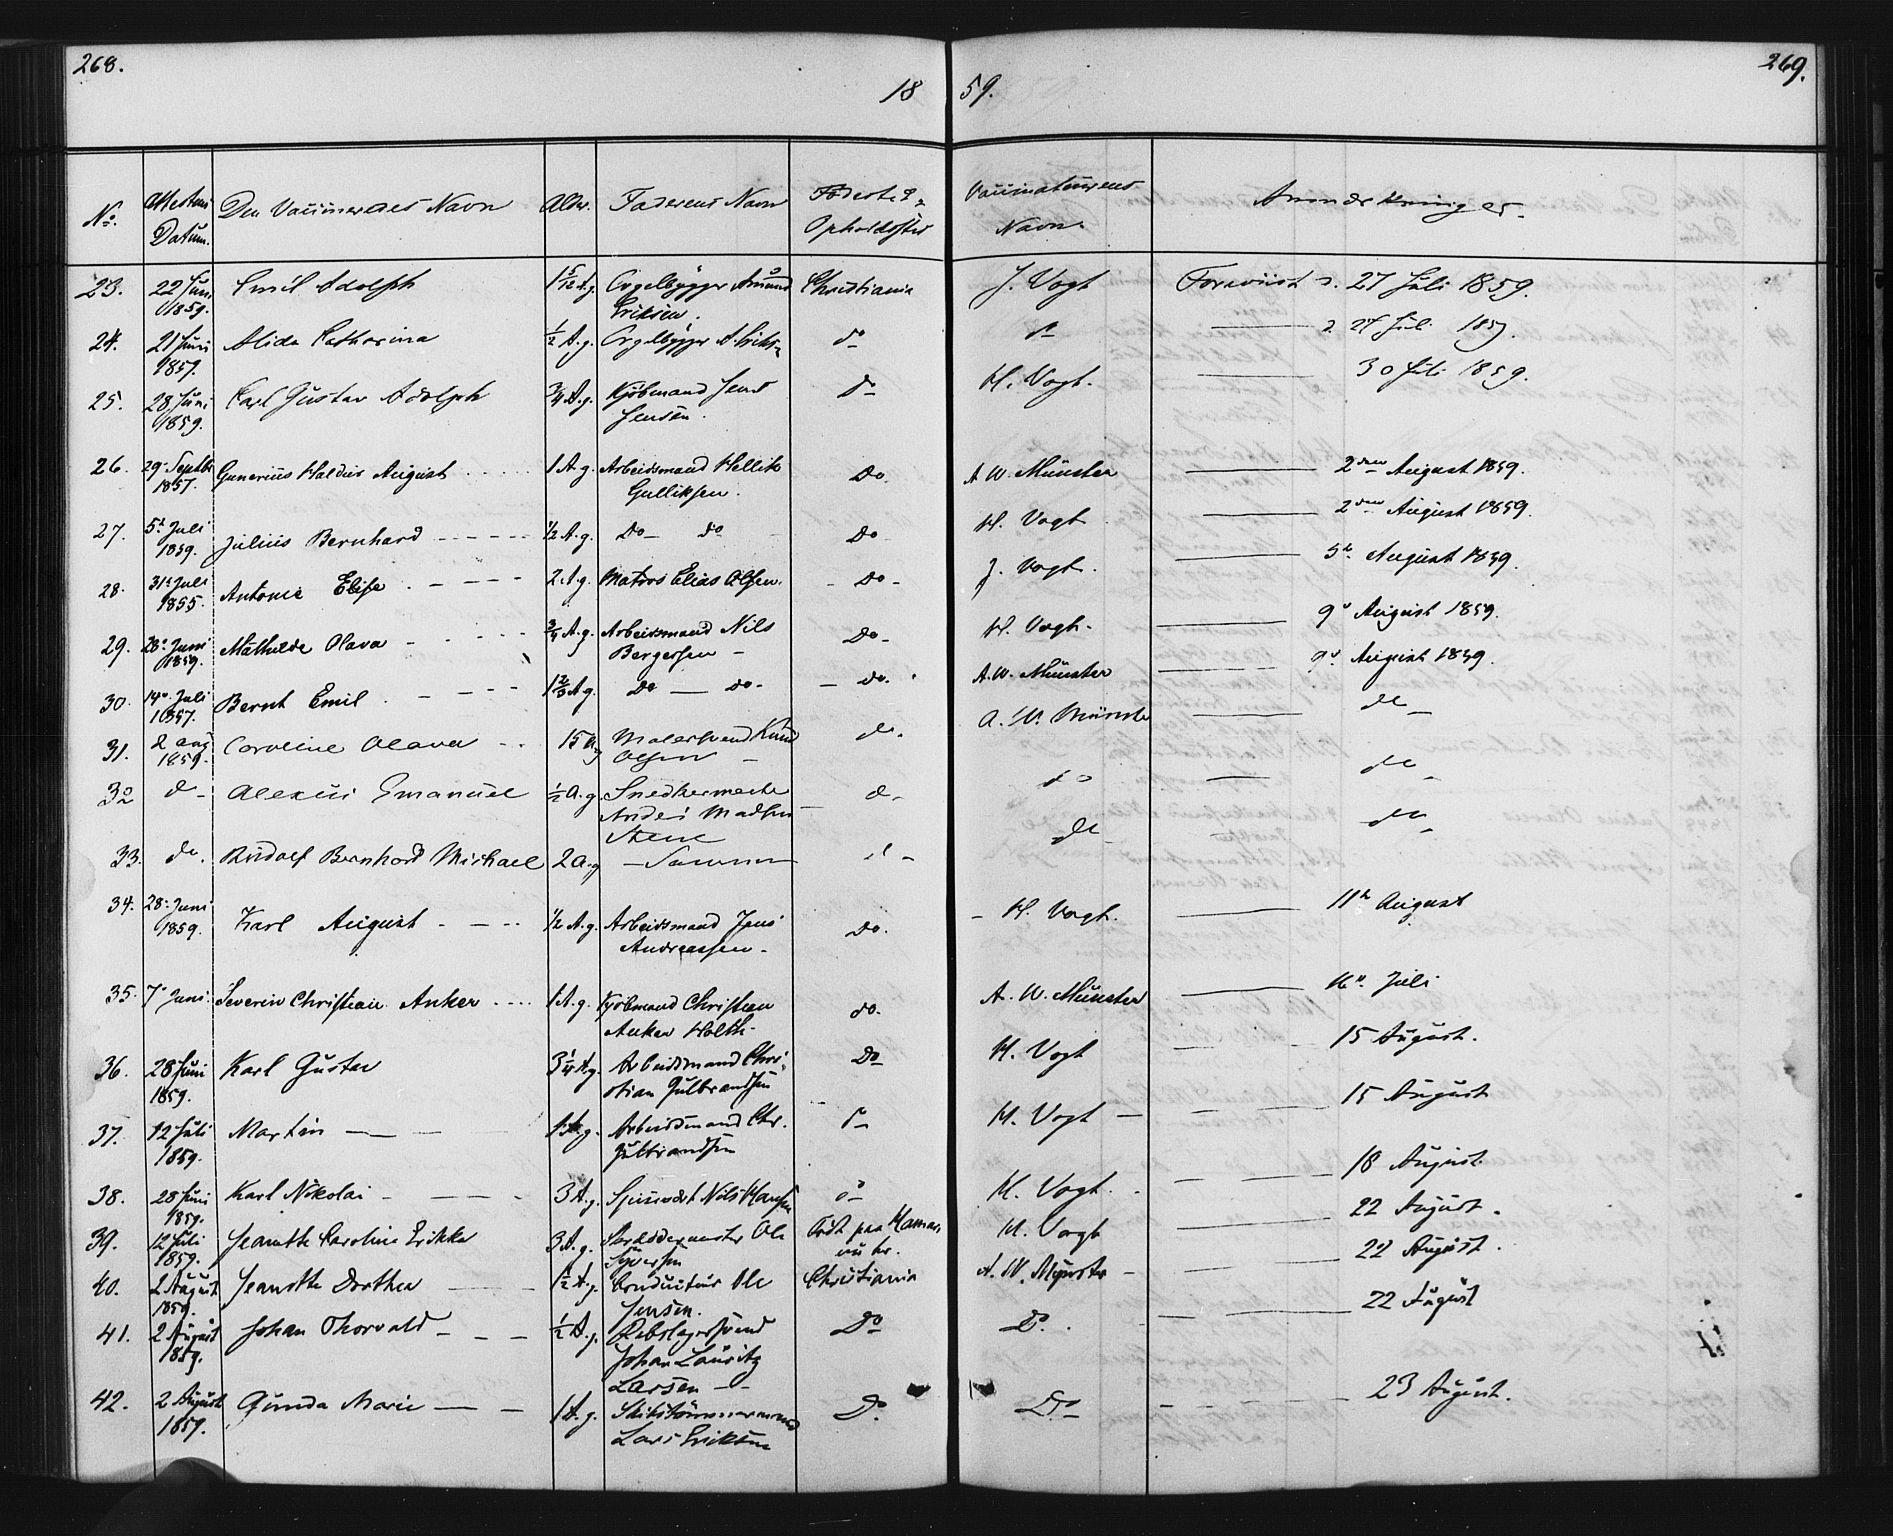 268.
269.
18 59.
No.
Attestens Datum.
Den Vaccineredes Navn
Alder.
Faderens Navn
Fødested & Opholdssted
Vaccinateurens Navn.
Anmærkninger.
23. 22 Juni 1859. Emil Adolph 1 5/12 A.g. Orgelbygger Amund Eriksen. Christiania J. Vogt Foreviist d. 27 Juli 1859.
24. 21 Juni 1859. Alida Catharina 1/2 A.g. Orgelbygger A. Eriksen do do — 27 Jul. 1859.
25. 28 Juni 1859. Carl Gustav Adolph 3/4 A.g. Kjøbmand Jens Jensen. do H. Vogt. — 30 Juli 1859.
26. 29. Septbr 1857. Gunerius Haldus August 1 A.g. Arbeidsmand Hellik Gulliksen. Do. A W. Münster — 2den August 1859.
27. 5t Juli 1859. Julius Bernhard 1/2 A.g. Do— do Do H. Vogt — 2den August 1859.
28. 31t Juli 1855. Antonie Elise 2 A.g. Matros Elias Olsen. - Do - J. Vogt. — 5t August 1859.
29. 28. Juni 1859. Mathilde Olava 3/4 A.g. Arbeidsmand Nils Bergersen — Do- H. Vogt. — 9d August 1859.
30. 14. Juli 1857. Bernt Emil 1 2/3 A.g. Do — Do- — do. A.W. Münster — 9d August 1859.
31. 2 aug 1859. Caroline Olava 15 A.g. Malersvend Knud Olsen — do. A. W. Münster — do
32 do Alexius Emanuel 1/2 A.g. Snedkermester Anders Madsen Steen do do — do
33. do. Rudolf Bernhard Michael 2 A.g — Samme — do do — do
34. 28. Juni 1859. Karl August 1/2 A.g. Arbeidsmand Jens Andreassen. Do. — H. Vogt. — 11t August
35. 7. Juni. Severin Christian Anker 1 A.g. Kjøbmand Christian Anker Holth. do. A. W. Münster — 16. Juli
36. 28 Juni 1859. Karl Gustav 3 1/4 A.g. Arbeidsmand Christian Gulbrandsen Do H. Vogt — 15 August.
37. 12 Juli 1859. Martin — 1 A.g. Arbeidsmand Chr. Gulbrandsen do H. Vogt — 15 August
38. 28 Juni 1859. Karl Nikolai — 3 A.g. Nils Hansen do H. Vogt. — 18 August
39. 12 Juli 1859. Jeanette Caroline Erikka 3 A.g. Skræddermester Ole Syversen Født paa Hamar, nu hr. H. Vogt — 22 August.
40. 2 August 1859. Jeanette Dorthea 1/2 A.g. Conducteur Ole Jensen. Christiania A. W. Mynster — 22 August.
41. 2 August 1859. Johan Thorvald — 1/2 A.g. Rebslagersvend Johan Lauritz Larsen — Do Do. — 22 August
42. 2 August 1859. Gunda Marie — 1 A.g. Skibstømmermand Lars Eriksen Do. Do. — 23 August.